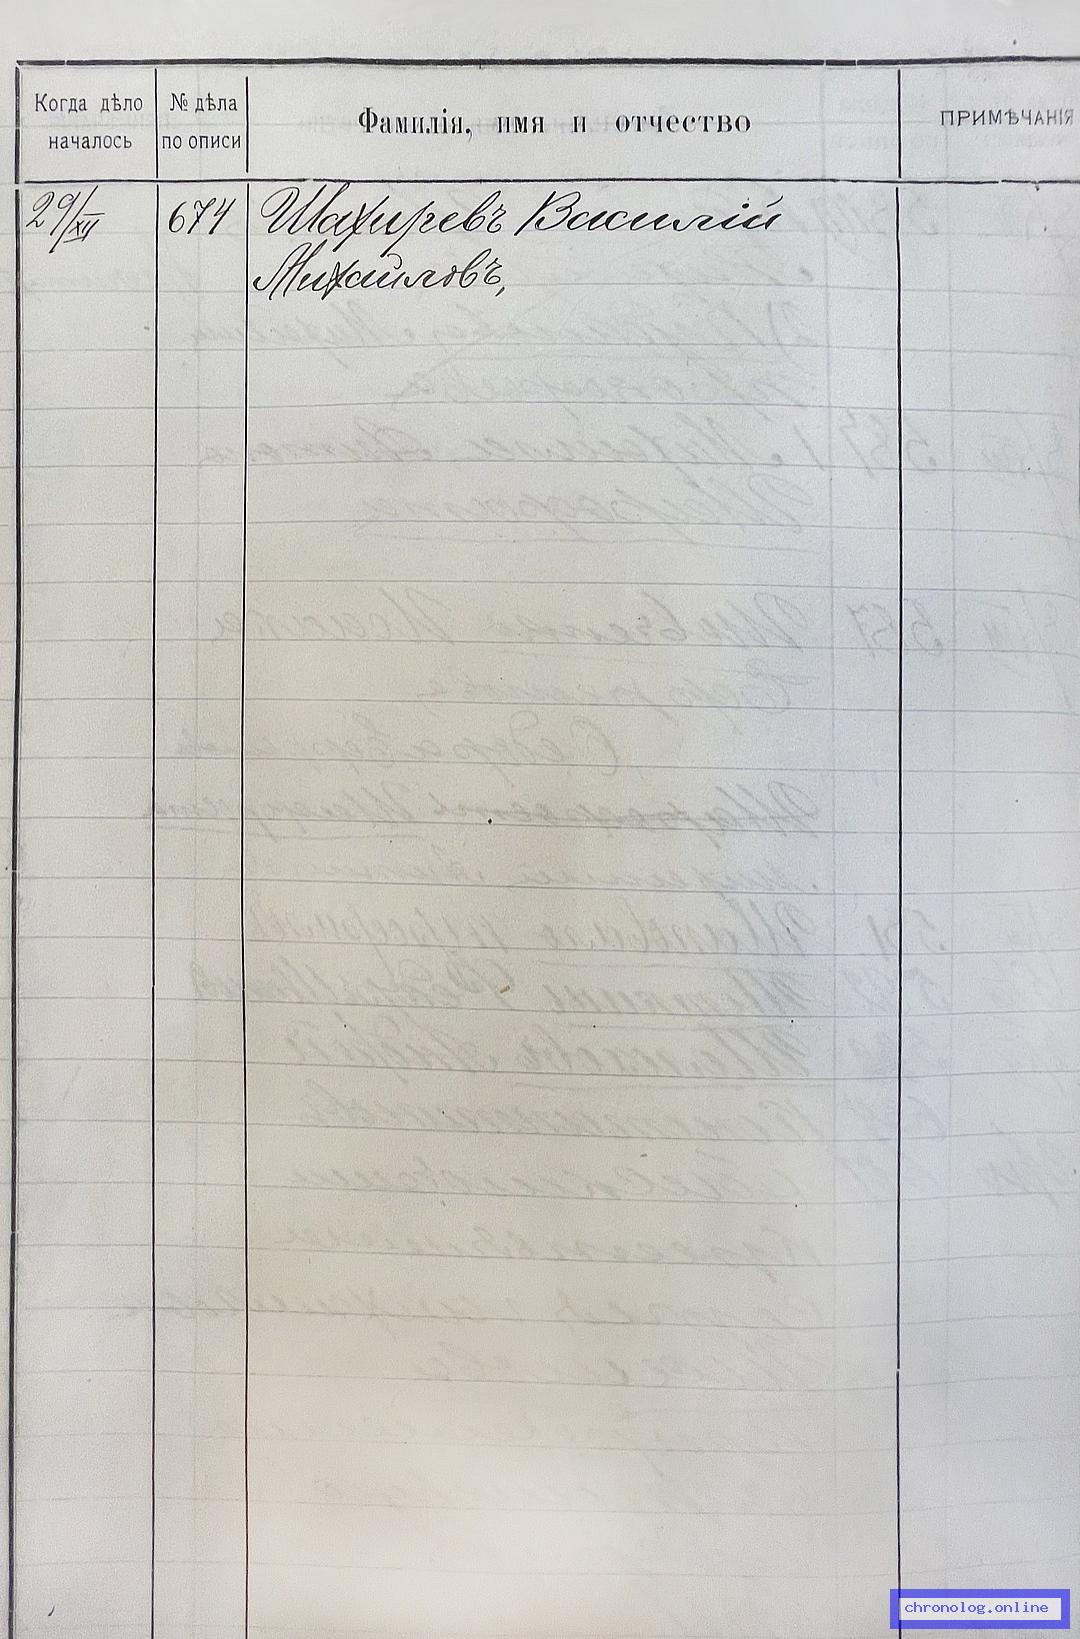 Когда дѣло началось
№ дѣла по описи
Фамилія, имя и отчество
ПРИМѢЧАНІЯ
29/XII 674 Шахиревъ Василій
Михайловъ,
chronolog.online